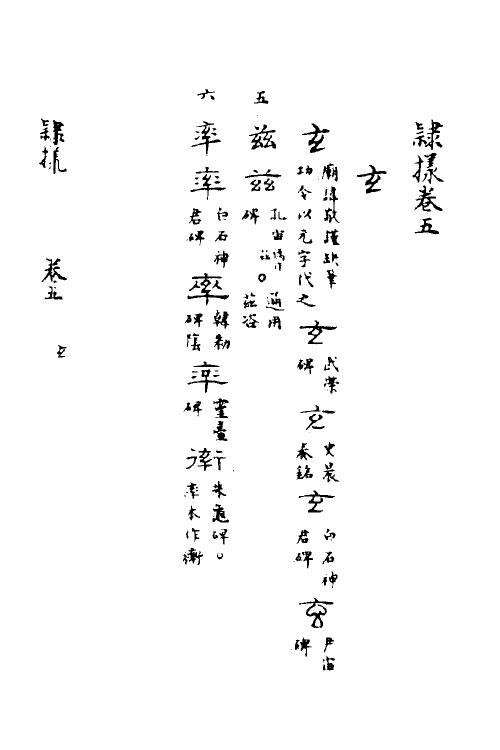 隸㨾卷五
玄
玄 廟諱敬謹缺筆功令以元字代之 玄 武榮碑 玄 史晨奏銘 玄 白石神君碑 玄 尹宙碑
五 玆 玆 孔宙碑 通用茲咨
六 率 率 白石神君碑 率 韓勑碑陰 率 靈臺碑 衛 朱龜碑。率本作衛
隸㨾 卷五 玄